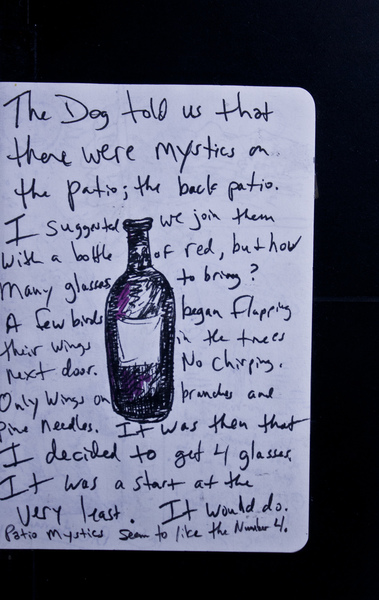 The Dog told us that
there were mystics on
the patio; the back patio.
I suggested we join them
with a bottle of red, but how
many glasses to bring?
A few birds began flapping
their wings in the trees
next door. No chirping.
Only wings on branches and
pine needles. It was then that
I decided to get 4 glasses.
It was a start at the
very least. It would do.
Patio Mystics seem to like the Number 4.